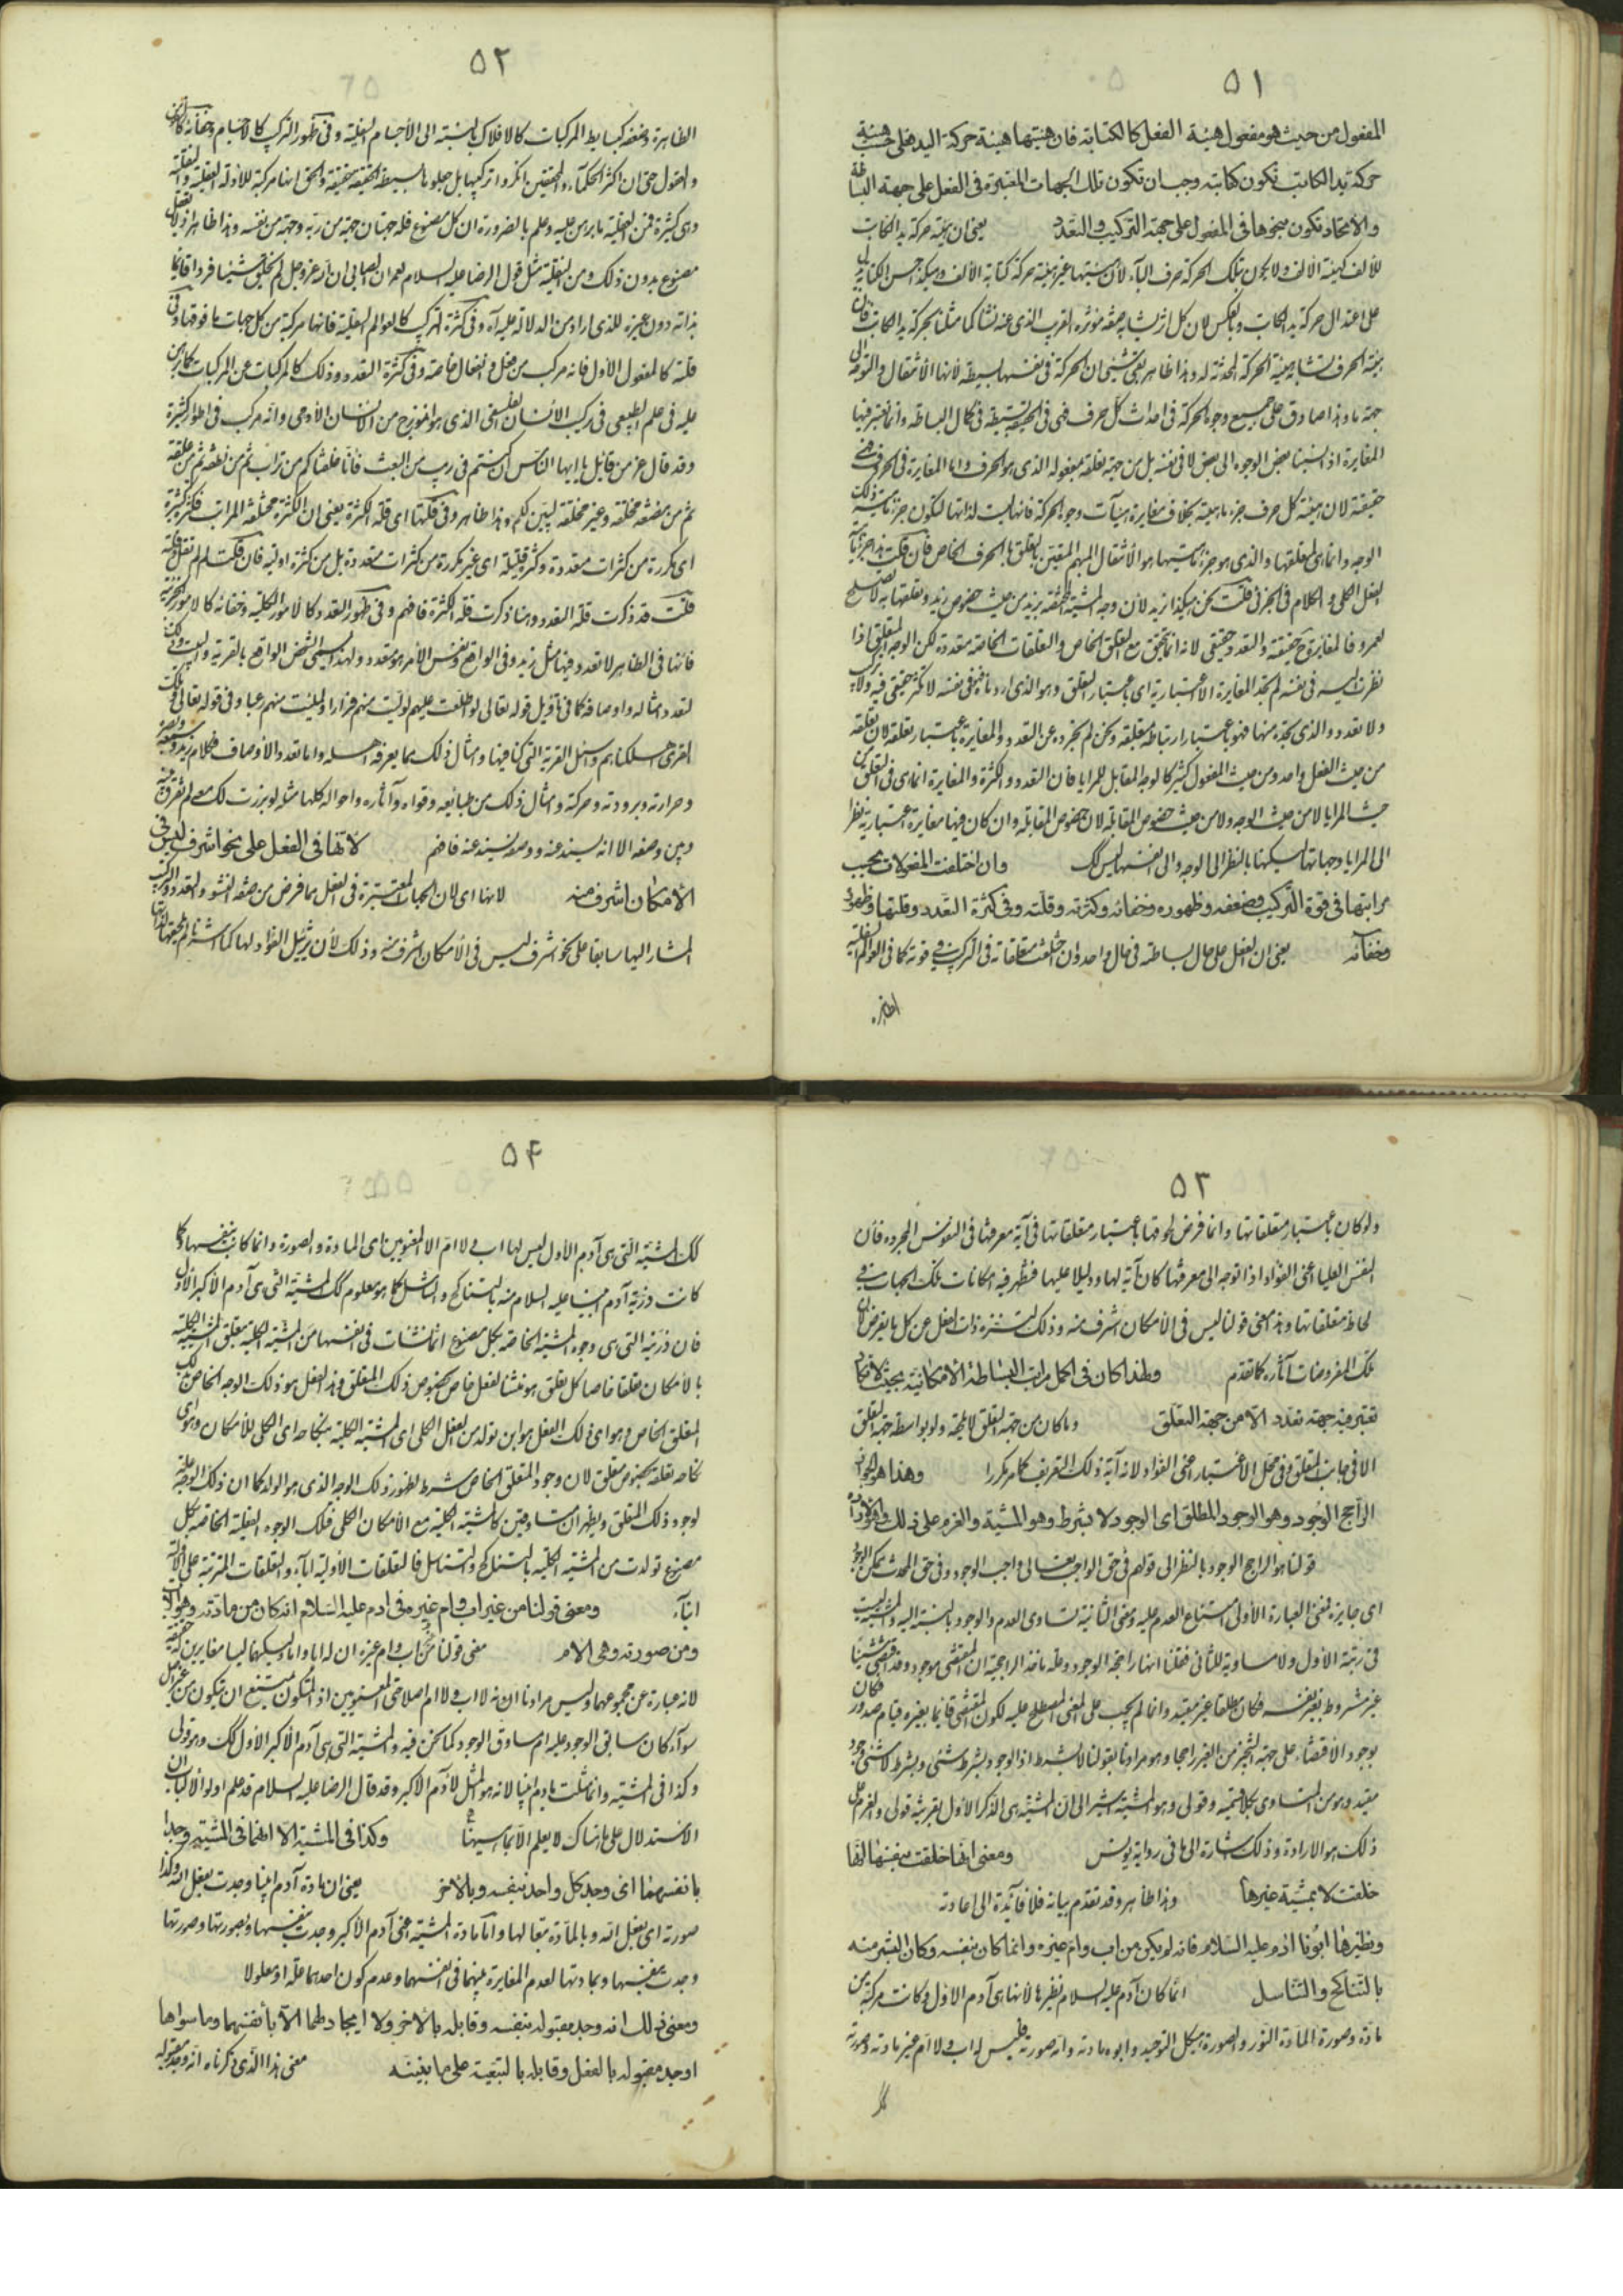 ٥١
المفعول من حيث هو مفعول هيئة الفعل كالكتابة فان هيئتها هيئة حركة اليد فعلى حسب هيئة
حركة يد الكاتب تكون كتابته وجب ان تكون تلك الجهات المعتبرة في الفعل على جهة البساطة
والاتحاد تكون بنحوها في المفعول على جهة التركيب والتعدد يعني ان هيئة حركة يد الكاتب
للألف كهيئة الألف ولا يكون بتلك الحركة حرف الباء لأن هيئتها غير هيئة حركة كتابة الألف وهكذا حسن الكتابة
على اعتدال حركة يد الكاتب وبالعكس لان كل اثر يشابه صفة مؤثره القريب الذي عنه نشأ كما مثلنا بحركة يد الكاتب فان
هيئة الحرف تشابه هيئة الحركة المحدثة له وهذا ظاهر بقي شيء ان الحركة في نفسها بسيطة لأنها الانتقال والتوجه الى
جهة ما وهذا صادق على جميع وجوه الحركة في احداث كل حرف فهي في الحقيقة بسيطة في كمال البساطة وانما تعتبر فيها
المغايرة اذا نسبنا بعض الوجوه الى بعض لا في نفسه بل من جهة تعلقه بمفعوله الذي هو الحرف واما المغايرة في الحروف فهي
حقيقة لان هيئة كل حرف جزء ماهيته بخلاف مغايرة هيآت وجوه الحركة فانها ليست لذاتها لتكون جزء ماهية ذلك
الوجه وانما هي لمتعلقها والذي هو جزء ماهيتها هو الانتقال المبهم المتعين بالتعلق بالحرف الخاص فان قلت هذا يجري في
الفعل الكلي والكلام في الجزئي قلت نحن هكذا نريد لأن وجه المشيئة المختصة بزيد من حيث خصوص زيد وتعلقها به لا يصلح
لعمرو فالمغايرة ح حقيقة والتعدد حقيقي لانه انما تحقق مع التعلق الخاص والتعلقات الخاصة متعددة لكن الوجه المتعلق اذا
نظرت اليه في نفسه لم تجد المغايرة الا اعتبارية اي باعتبار التعلق وهو الذي اردناه فهو في نفسه لا تكثر حقيقي فيه ولا تركيب
ولا تعدد والذي تجده منها فهو باعتبار ارتباطه بمتعلقه ونحن لم نجرده عن التعدد والمغايرة باعتبار تعلقه لان تعلقه
من حيث الفعل واحد ومن حيث المفعول كثير كالوجه المقابل للمرايا فان التعدد والكثرة والمغايرة انما هي في التعلق من
حيث المرايا لا من حيث الوجه ولا من حيث خصوص المقابلة لان خصوص المقابلة وان كان فيها مغايرة اعتبارية نظرا
الى المرايا وجهاتها لكنها بالنظر الى الوجه والى نفسها ليس كك وان اختلفت المفعولات بحسب
مراتبها في قوة التركيب وضعفه وظهوره وخفائه وكثرته وقلته وفي كثرة التعدد وقلتها وظهوره
وخفائه يعني ان الفعل على حال بساطته في حال واحد وان اختلفت متعلقاته في التركيب في قوته كما في العوالم السفلية
الظاهرة
٥٢
الظاهرة وضعفه كبسايط المركبات كالافلاك بالنسبة الى الأجسام السفلية وفي ظهور التركيب كالاجسام وخفائه كالنفوس
والعقول حتى ان اكثر الحكماء والمحققين انكروا تركيبها بل جعلوها بسيطة الحقيقة حقيقة والحق انها مركبة للادلة العقلية والنقلية
وهي كثيرة فمن العقلية ما برهن عليه وعلم بالضرورة ان كل مصنوع فله جهتان جهة من ربه وجهة من نفسه وهذا ظاهر اذ لا يعقل
مصنوع بدون ذلك ومن النقلية مثل قول الرضا عليه السلام لعمران الصابي ان الله عز وجل لم يخلق شيئا فردا قائما
بذاته دون غيره للذي اراد من الدلالة عليه آه وفي كثرة التركيب كالعوالم السفلية فانها مركبة من كل جهات ما فوقها وفي
قلته كالمفعول الأول فانه مركب من فعل وانفعال خاصة وفي كثرة التعدد وذلك كالمركبات عن المركبات كما برهن
عليه في علم الطبيعي في تركيب الانسان الفلسفي الذي هو انموذج من الانسان الأوسط وانه مركب في اطوار كثيرة
وقد قال عز من قائل يا ايها الناس ان كنتم في ريب من البعث فانا خلقناكم من تراب ثم من نطفة ثم من علقة
ثم من مضغة مخلقة وغير مخلقة لنبين لكم وهذا ظاهر وفي قلتها اي قلة الكثرة يعني ان الكثرة مختلفة المراتب فكثرة كثيرة
اي مكررة من كثرات متعددة وكثرة قليلة اي غير مكررة من كثرات متعددة بل من كثرة اولية فان قلت لم لم تقل قلته
قلت قد ذكرت قلة التعدد وهنا ذكرت قلة الكثرة فافهم وفي ظهور التعدد كالامور الكلية وخفائه كالامور الجزئية
فانها في الظاهر لا تعدد فيها مثل زيد وفي الواقع ونفس الأمر هو متعدد ولهذا يسمى الشخص الواقع بالقرية والبيت وذلك
لتعدد امثاله واوصافه كما في تأويل قوله تعالى لو اطلعت عليهم لوليت منهم فرارا ولملئت منهم رعبا وفي قوله تعالى وتلك
القرى اهلكناهم واسئل القرية التي كنا فيها وامثال ذلك مما يعرفه اهله واما تعدد الأوصاف فكلام زيد وبصره وسمعه
وحرارته وبرودته وحركته وامثال ذلك من طبائعه وقواه وآثاره واحواله كلها مثله لو برزت لك معه لم تفرق بينه
وبين وصفه الا انه يسند عنه ووصفه يسند عنه فافهم لانها في الفعل على نحو اشرف ليس في
الأمكان اشرف منه لانها اي لان الجهات المعتبرة في الفعل مما فرض من صفة النشو والتعدد والتركيب
المشار اليها سابقا على نحو اشرف ليس في الأمكان اشرف منه وذلك لأن تمثيل الفؤاد لها كما اشرنا
٥٣
ولو كان باعتبار متعلقاتها وانما فرض لحوقها باعتبار متعلقاتها في آية معرفتها في النفوس المجردة فان
النفس العليا اعني الفؤاد اذا توجه الى معرفتها كان آية لها ودليلا عليها فتظهر فيه امكانات تلك الجهات في
لحاظ متعلقاتها وهذا معنى قولنا ليس في الأمكان اشرف منه وذلك لتنزه ذات الفعل عن كل ما يفرض لان
تلك المفروضات آثاره كما تقدم ولهذا كان في اكمل مراتب البساطة الامكانية بحيث لا تكاد
تعتبر فيه جهة تعدد الا من جهة التعلق وما كان من جهة التعلق لا يلحقه ولو بواسطة جهة التعلق
الا في جانب المتعلق وفي محل الاعتبار اعني الفؤاد لانه آية ذلك التعريف كما مر مكررا وهذا هو الوجود
الراجح الوجود وهو الوجود المطلق اي الوجود لا بشرط وهو المشية والعزم على ذلك هو الارادة
قولنا هو الراجح الوجود بالنظر الى قولهم في حق الواجب تعالى واجب الوجود وفي حق المحدث ممكن الوجود
اي جايزه لمعنى العبارة الأولى امتناع العدم عليه ومعنى الثانية تساوي العدم والوجود بالنسبة اليه والمشية ليست
في رتبة الأول ولا مساوية للثاني فقلنا انها راجحة الوجود وعلة مأخذ الراجحية ان المقتضي موجود
غير مشروط بغير نفسه فكان مطلقا غير مقيد وانما لم يجب على المعنى المصطلح عليه لكون المقتضي قائما بغيره قيام صدور فكان
بوجود الاقتضاء على جهة التنجز من الغير راجحا وهو مرادنا بقولنا لا بشرط اذ الوجود بشرط شيء وبشرط لا شيء وجود
مقيد وهو من المتساوي بكلا قسميه وقولي وهو المشية اشير الى ان المشية هي الذكر الأول بقرينة قولي والعزم على
ذلك هو الارادة وذلك اشارة الى ما في رواية يونس ومعنى انها خلقت بنفسها انها
خلقت لا بمشية غيرها وهذا ظاهر وقد تقدم بيانه فلا فائدة الى اعادته
ونظيرها ابونا ادم عليه السلام فانه لم يكن من اب وام غيره وانما كان بنفسه وكان البشر منه
بالتناكح والتناسل انما كان آدم عليه السلام نظيرها لأنها هي آدم الاول وكانت مركبة من
مادة وصورة المادة النور والصورة هيكل التوحيد وابوه مادته وامه صورته فليس له اب ولا ام غير مادته وصورته
كك
٥٤
كك المشية التي هي آدم الأول ليس لها اب ولا ام الا المعنويين اي المادة والصورة وانما كانت بنفسها وكما
كانت ذرية آدم ابينا عليه السلام منه بالتناكح والتناسل كما هو معلوم كك المشية التي هي آدم الأكبر الأول
فان ذريته التي هي وجوه المشية الخاصة بكل مصنوع انما نشأت في انفسها من المشية الكلية بتعلق المشية الكلية
بالأمكان تعلقا خاصا كل تعلق هو منشأ لفعل خاص بخصوص ذلك المتعلق وهذا الفعل هو ذلك الوجه الخاص بذلك
المتعلق الخاص وهو اي ذلك الفعل هو ابن تولد من الفعل الكلي اي المشية الكلية بنكاحه اي الكلي للأمكان وهو اي
نكاحه تعلقه بخصوص متعلق لان وجود المتعلق الخاص شرط لظهور ذلك الوجه الذي هو الولد كما ان ذلك الوجه علة
لوجود ذلك المتعلق ويظهران متساوقين كالمشية الكلية مع الأمكان الكلي فتلك الوجوه الفعلية الخاصة بكل
مصنوع تولدت من المشية الكلية بالتناكح والتناسل فالتعلقات الأولية آباء والتعلقات المترتبة على الأولية
ابناء ومعنى قولنا من غير اب وام غيره في ادم عليه السلام انه كان من مادته وهو الأب
ومن صورته وهي الام معنى قولنا من اب وام غيره ان له ابا واما لكنهما ليسا مغايرين له حقيقة
لانه عبارة عن مجموعهما وليس مرادنا ان لا اب ولا ام اصلا حتى المعنويين اذ المتكون يمتنع ان يتكون من غير اصل
سواء كان سابق الوجود عليه ام مساوق الوجود كما نحن فيه والمشية التي هي آدم الأكبر الأول كك وهو قولي
وكذا في المشية وانما مثلت بادم ابينا لانه هو المثل لآدم الاكبر وقد قال الرضا عليه السلام قد علم اولوا الألباب ان
الاستدلال على ما هناك لا يعلم الا بما هيهنا وكذا في المشية الا انهما في المشية وجدا
بانفسهما اي وجد كل واحد بنفسه وبالاخر يعني ان مادة آدم ابينا وجدت بفعل الله وكذا
صورته اي بفعل الله وبالمادة بقبالها واما مادة المشية اعني آدم الأكبر وجدت بنفسها وبصورتها وصورتها
وجدت بنفسها وبمادتها لعدم المغايرة بينهما في انفسهما وعدم كون احدهما علة او معلولا
ومعنى ذلك انه وجد مقبوله بنفسه وقابله بالأخر ولا ايجاد لهما الا بأنفسهما وما سواها
اوجد مقبوله بالفعل وقابله بالتبعية على ما بينته معنى هذا الذي ذكرناه انه وجد مقبوله